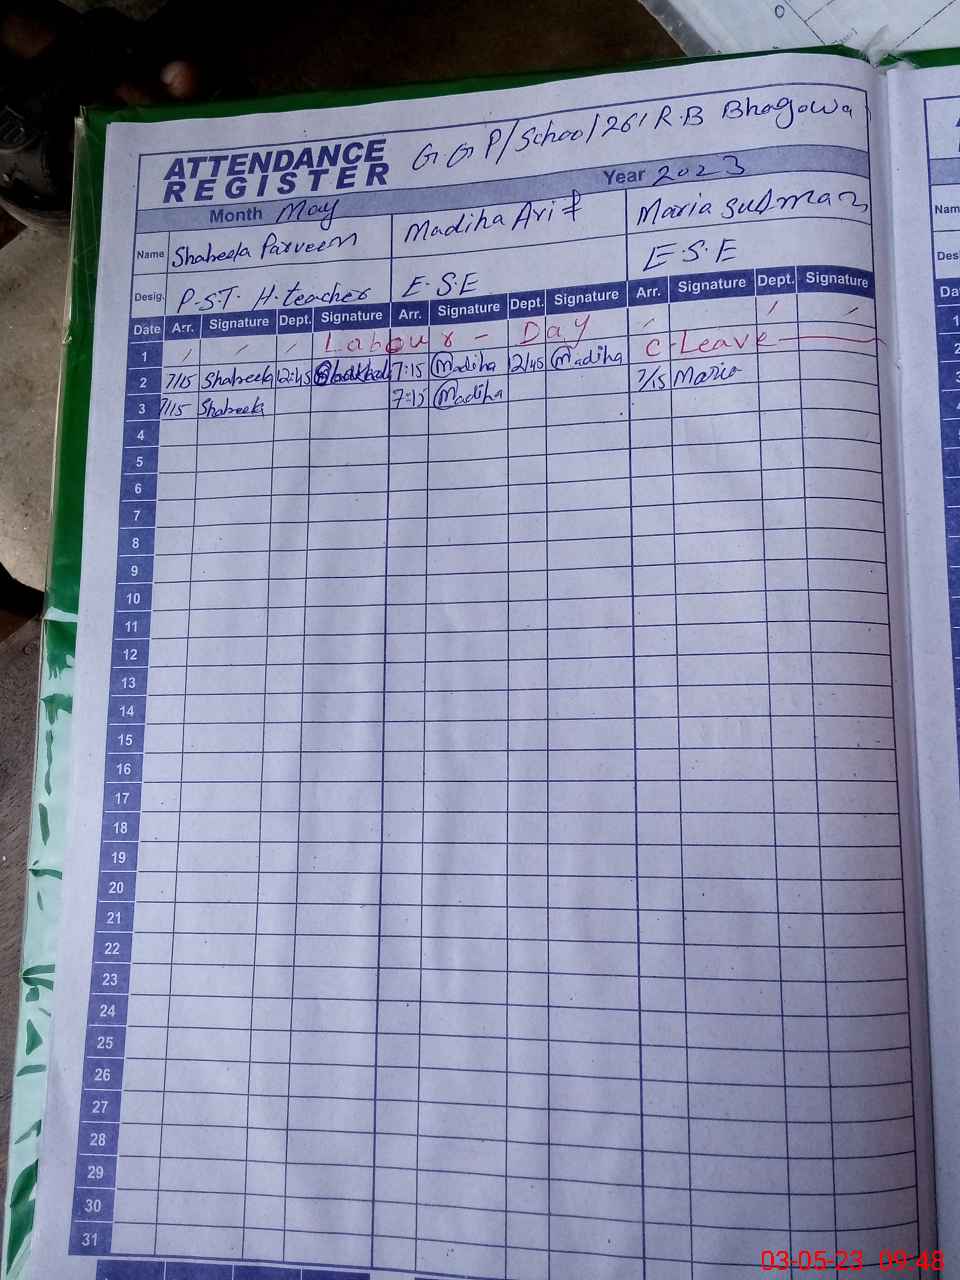 G.G P/School/261 R.B Bhagowa
ATTENDANCE
REGISTER
Month May Year 2023
Name Shabeela Parveen Madiha Arif Maria Sulman
Desig. P.S.T. H.teacher E.S.E E.S.E
Date Arr. Signature Dept. Signature Arr. Signature Dept. Signature Arr. Signature Dept. Signature
1 / / / Labour - Day / / /
2 7/15 Shabeela 12:45 7:15 Madiha 12/45 Madiha C-Leave
3 7/15 Shabeela 7:15 Madiha 7/15 Maria
4
5
6
7
8
9
10
11
12
13
14
15
16
17
18
19
20
21
22
23
24
25
26
27
28
29
30
31
Nam
Des
Da
03-05-23 09:48